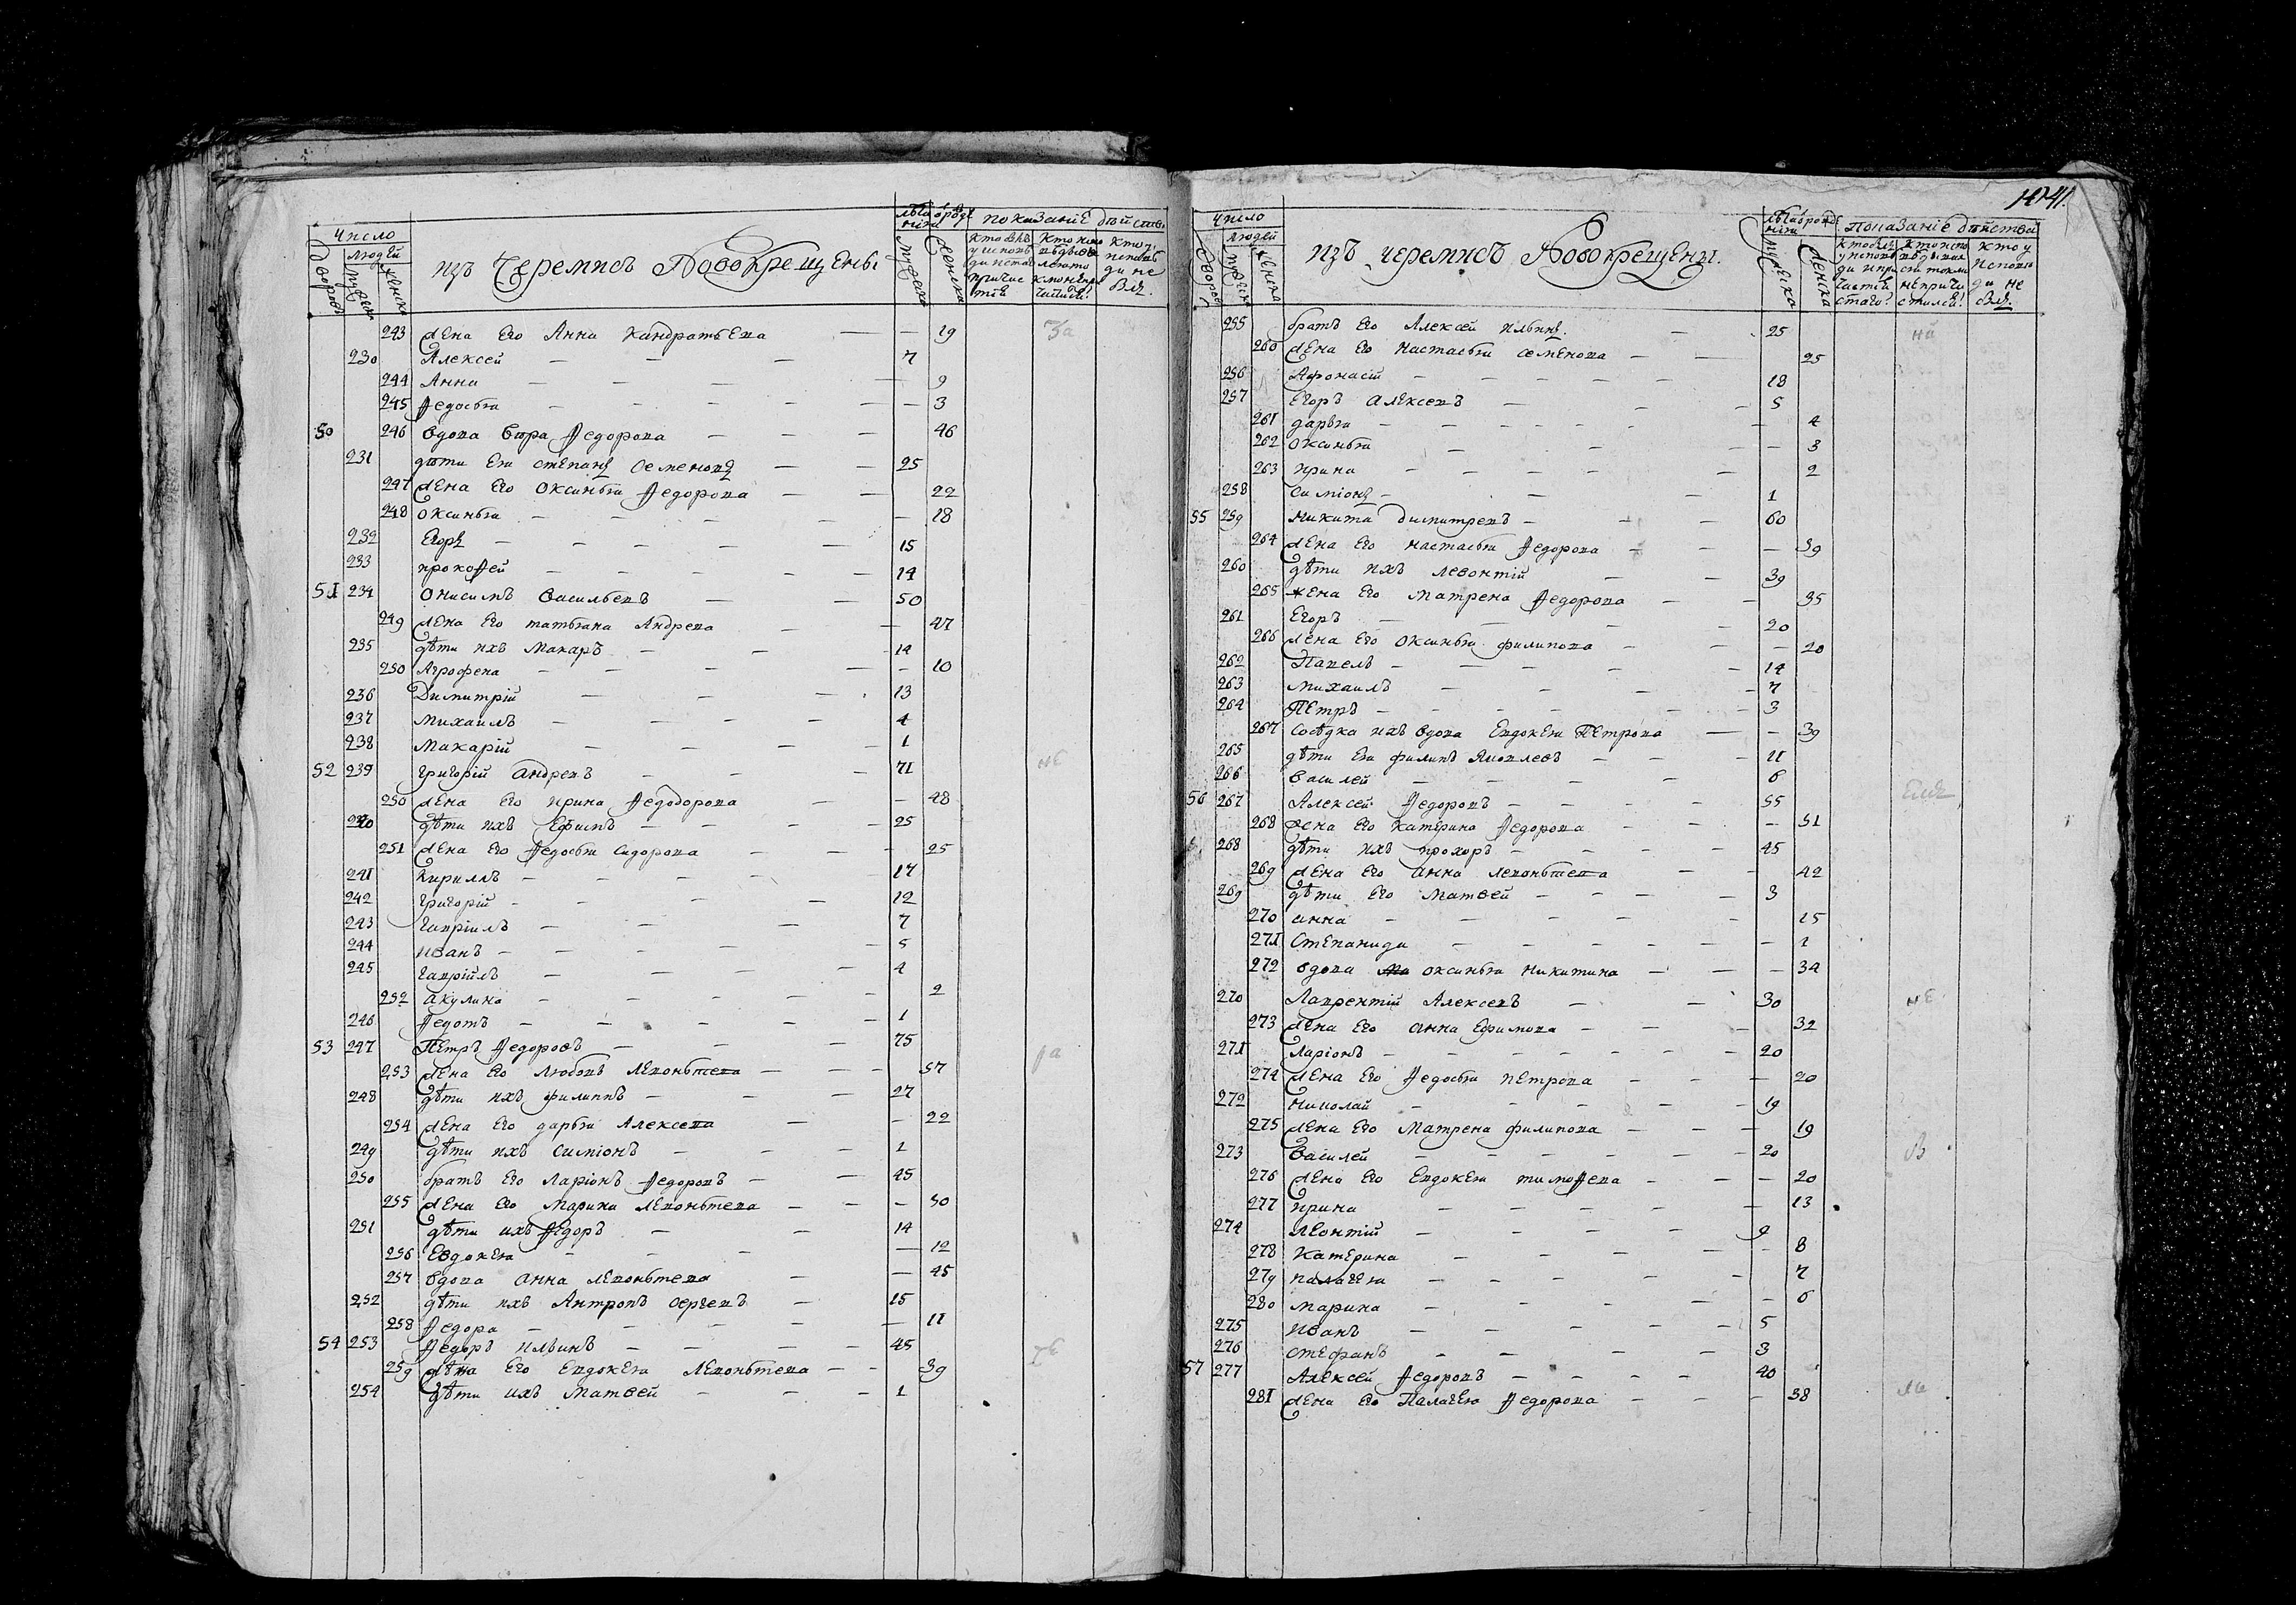 Число
людей
дворовъ
мужеск
женска
изъ Черемисъ Новокрещены
лѣта о рожде
нiя
мужеска
женска
показанiе дѣйства
243 жена Его Анна Кандратьева — — 19
230 Алексей — — — 7
244 Анна — — — — 9
245 Федосья — — — — — 3
50 246 вдова вѣра Федорова — — — 46
231 дѣти Ея степанъ Семеновъ — — 25
247 жена Его Оксинья Федорова — — 22
248 Оксинья — — — — — 18
232 Егоръ — — — — — 15
233 прокофей — — — — — 14
51 234 Онисимъ Васильевъ — — 50
249 жена Его татьяна Андрева — — 47
235 дѣти ихъ Макаръ — — — 14
250 Агрофена — — — — — 10
236 Димитрiй — — — 13
237 Михаилъ — — — — 4
238 Макарiй — — — — 1
52 239 григорiй андревъ — — — 71
250 жена Его ирина Федодорова — — 48
240 дѣти ихъ Ефимъ — — — — 25
251 жена Его Федосья Сидорова — — — 25
241 кирилъ — — — — 17
242 григорiй — — — — — 12
243 гаврiилъ — — — — 7
244 иванъ — — — — — — 5
245 гаврiилъ — — — — 4
252 акулина — — — — — 2
246 Федотъ — — — — — 1
53 247 Петръ Федоровъ — — — 75
253 жена Его любовь леконьтева — — — 57
248 дѣти ихъ филиппъ — — — 27
254 жена Его дарья Алексева — — 22
249 дѣти ихъ симiонъ — — — 1
250 братъ Его ларiонъ Федоровъ — — 45
255 жена Его Марина левоньтева — — — 50
251 дѣти ихъ Федоръ — — 14
256 Евдокея — — — — 12
257 вдова анна левоньтева — — 45
252 дѣти ихъ Антропъ сергевъ — 15
258 Федора — — — — — — 11
54 253 Федоръ ильинъ — — — — 45
259 жена Его Евдокея левоньтева — — 39
254 дѣти ихъ матвей — — — 1
141
Число
людей
дворовъ
мужеска
женска
изъ черемисъ Новокрещены.
лѣта о рожд
нiя
мужеска
женска
показанiе дѣйства
255 братъ Его Алексей ильинъ. — 25
260 жена Его настасья семенова — — 25
256 Афонасiй — — — — — 18
257 Егоръ алексевъ — — — 5
261 дарья — — — — — — — 4
262 оксинья — — — — 3
263 ирина — — — — — 2
258 симiонъ — — — 1
55 259 никита димитревъ — — — 60
264 жена Его настасья Федорова — — — 39
260 дѣти ихъ левонтiй — — 39
265 жена Его матрена Федорова — — 35
261 Егоръ — — — — — 20
266 жена Его оксинья филипова — — — 20
262 Павелъ — — — — — 14
263 михаилъ — — — — 7
264 Петръ — — — — — — 3
267 соседка ихъ вдова Евдокея Петрова — — 39
265 дѣти Ея филипъ Яковлевъ — — — 11
266 василей — — — — 6
56 267 Алексей Федоровъ — — — — 55
268 жена Его катерина Федорова — — — 51
268 дѣти ихъ прохоръ — — — — 45
269 жена Его анна левоньтева — — 42
269 дѣти Его матвей — — — 3
270 анна — — — — — 15
271 степанида — — — — — 1
272 вдова оксинья никитина — — — 34
270 Лаврентiй Алексевъ — — 30
273 жена Его анна Ефимова — — — 32
271 ларiонъ — — — — — — 20
274 жена Его Федосья петрова — — — 20
272 николай — — — — — 19
275 жена Его матрена филипова — — — 19
273 василей — — — — — 20
276 жена Его Евдокея тимофева — — — 20
277 ирина — — — — — 13
274 леонтiй — — — — 9
278 катерина — — — — — 8
279 палагея — — — — — 7
280 марина — — — — — 6
275 иванъ — — — — — 5
276 стефанъ — — — — 3
57 277 Алексей Федоровъ — — — — 40
281 жена Его Палагея Федорова — — — 38